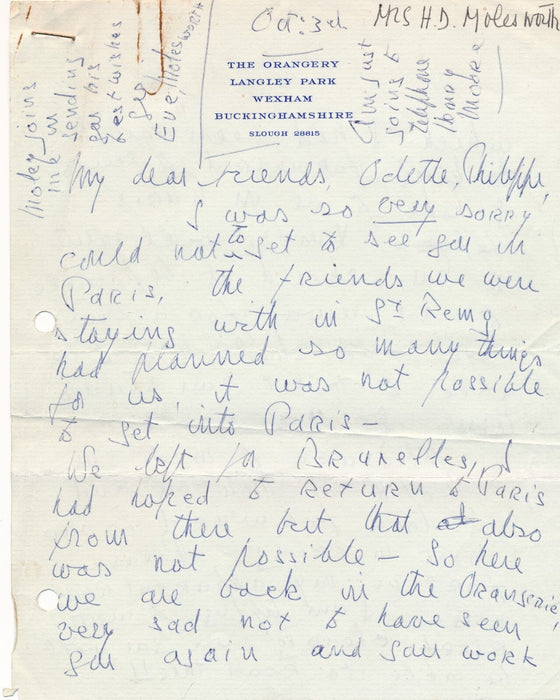 Oct: 3rd
Mrs H.D. Molesworth
THE ORANGERY
LANGLEY PARK
WEXHAM
BUCKINGHAMSHIRE
SLOUGH 28815
My dear friends, Odette, Philippe,
I was so very sorry
could not to get to see you in
Paris, the friends we were
staying with in St Remy
had planned so many things
for us, it was not possible
to get into Paris –
We left for Bruxelles, I
had hoped to return to Paris
from there but that at also
was not possible – So here
we are back in the Orangerie,
very sad not to have seen
you again and your work
Moley joins
me in
sending
you his
best wishes
Eve, Molesworth
I am just
going to
telephone
Henry
Moore